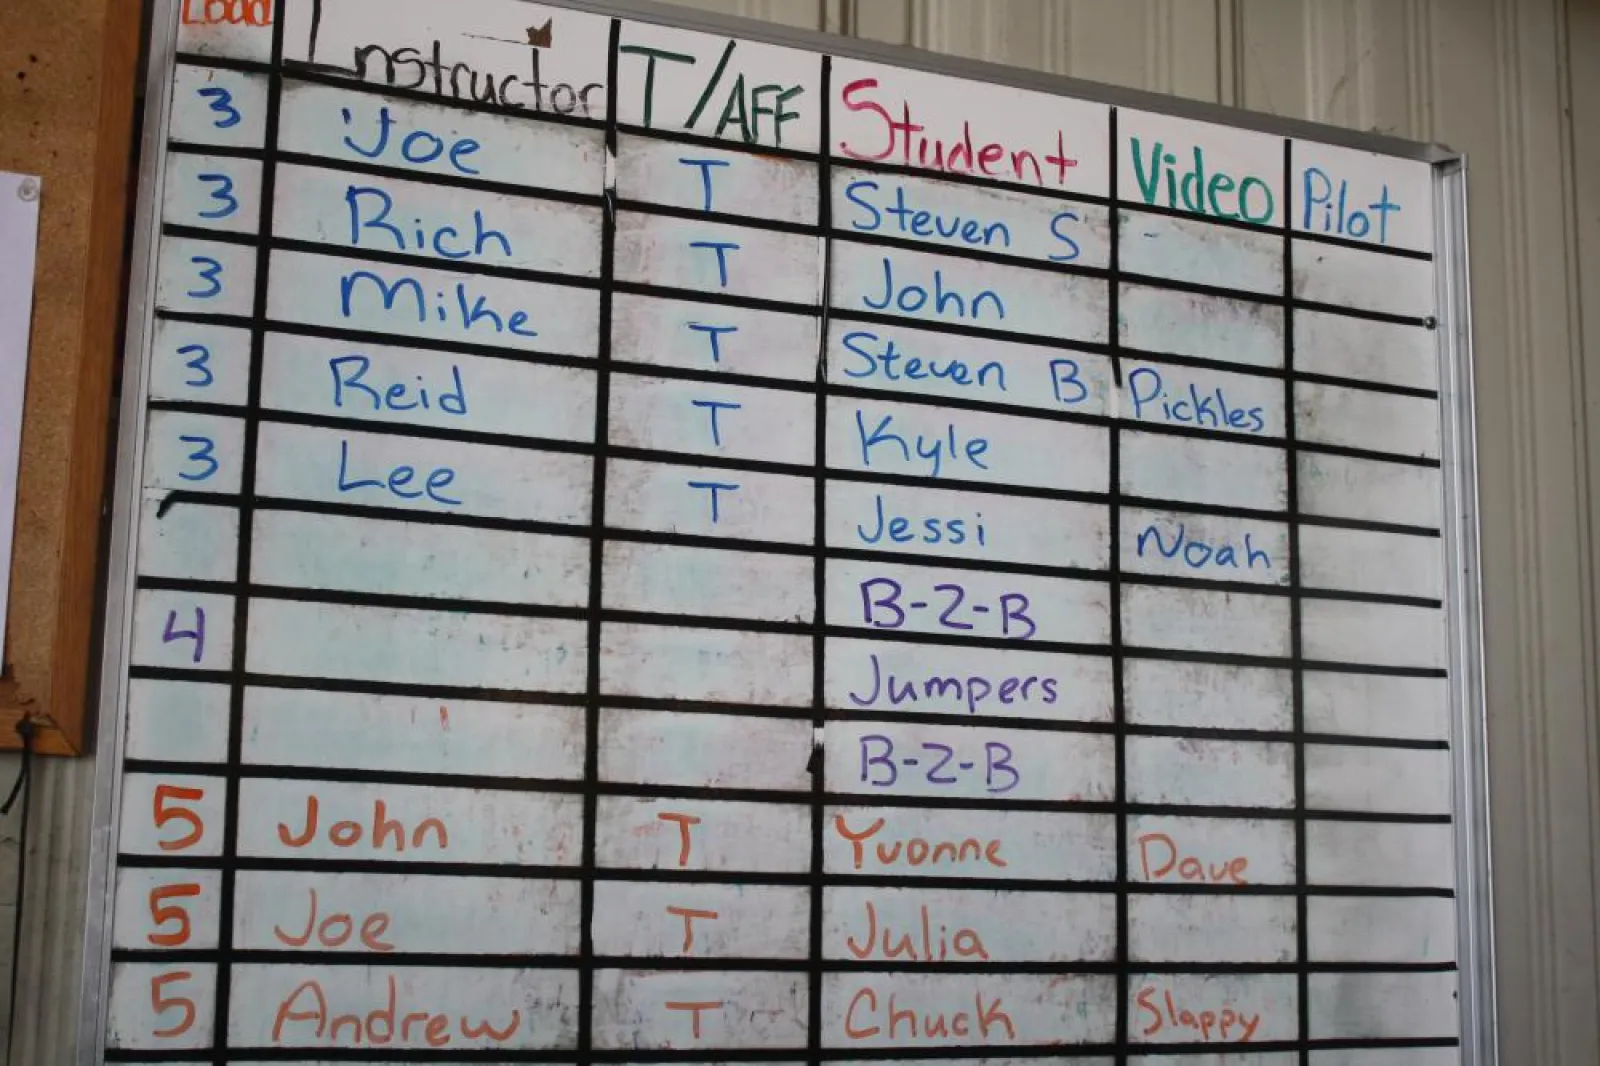 Load Instructor T/AFF Student Video Pilot
3 Joe T Steven S -
3 Rich T John
3 Mike T Steven B Pickles
3 Reid T Kyle
3 Lee T Jessi Noah
B-2-B
4 Jumpers
B-2-B
5 John T Yvonne Dave
5 Joe T Julia
5 Andrew T Chuck Slappy